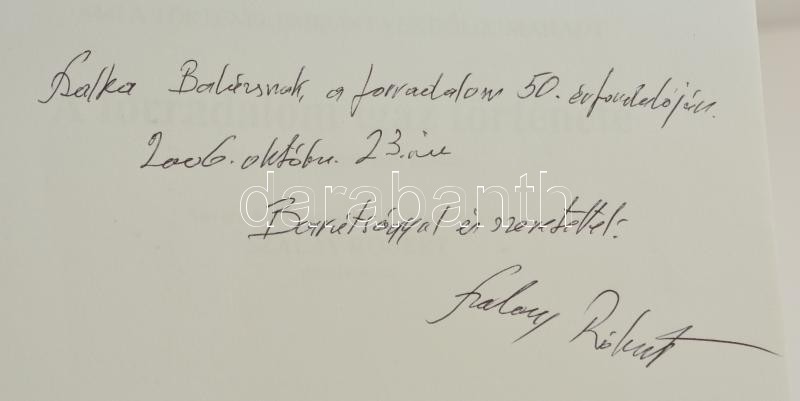 Szalka Balázsnak, a forradalom 50. évfordulóján.
2006. október 23.-án
darabanth
Barátsággal és szeretettel:
Szalay Róbert